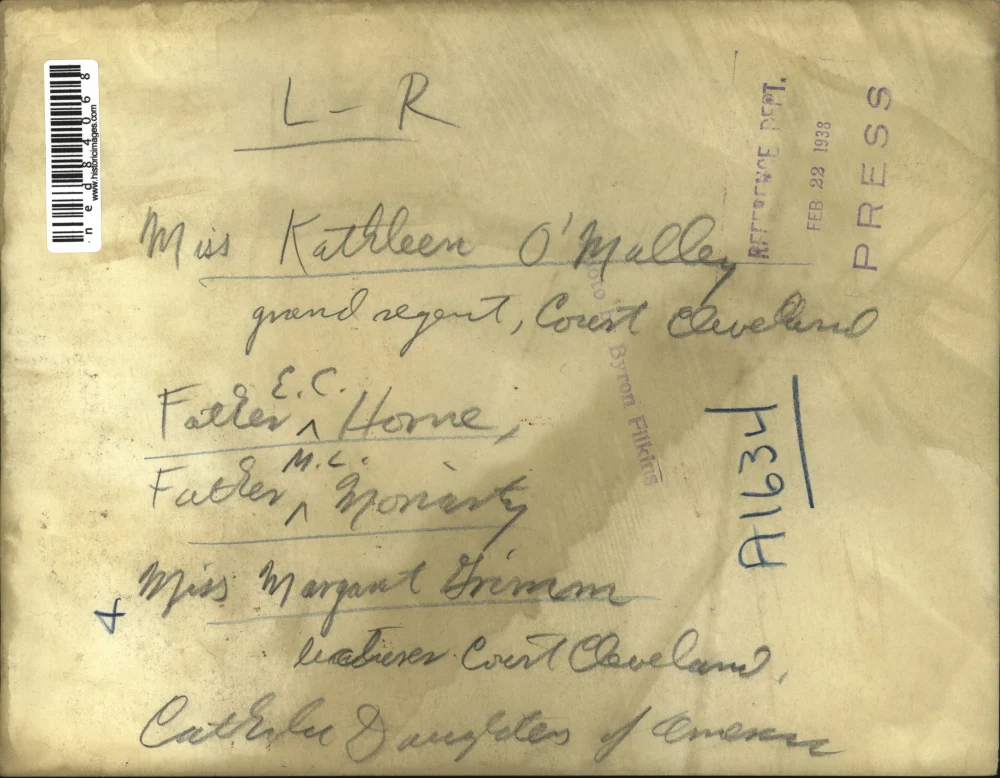 L - R
Miss Kathleen O'Malley
grand regent, Court Cleveland
Father E.C. Horne,
Father M.L. Moriarty
Miss Margaret Grimm
lecturer Court Cleveland.
Catholic Daughters of America
4
A1634
REFERENCE DEPT.
FEB 22 1938
PRESS
Photo by Byron Filkins
www.historicimages.com
ned84068